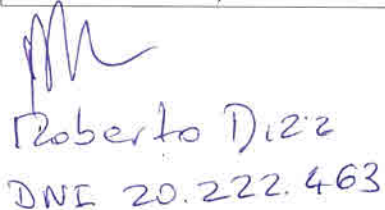 Roberto Dizz
DNI 20.222.463